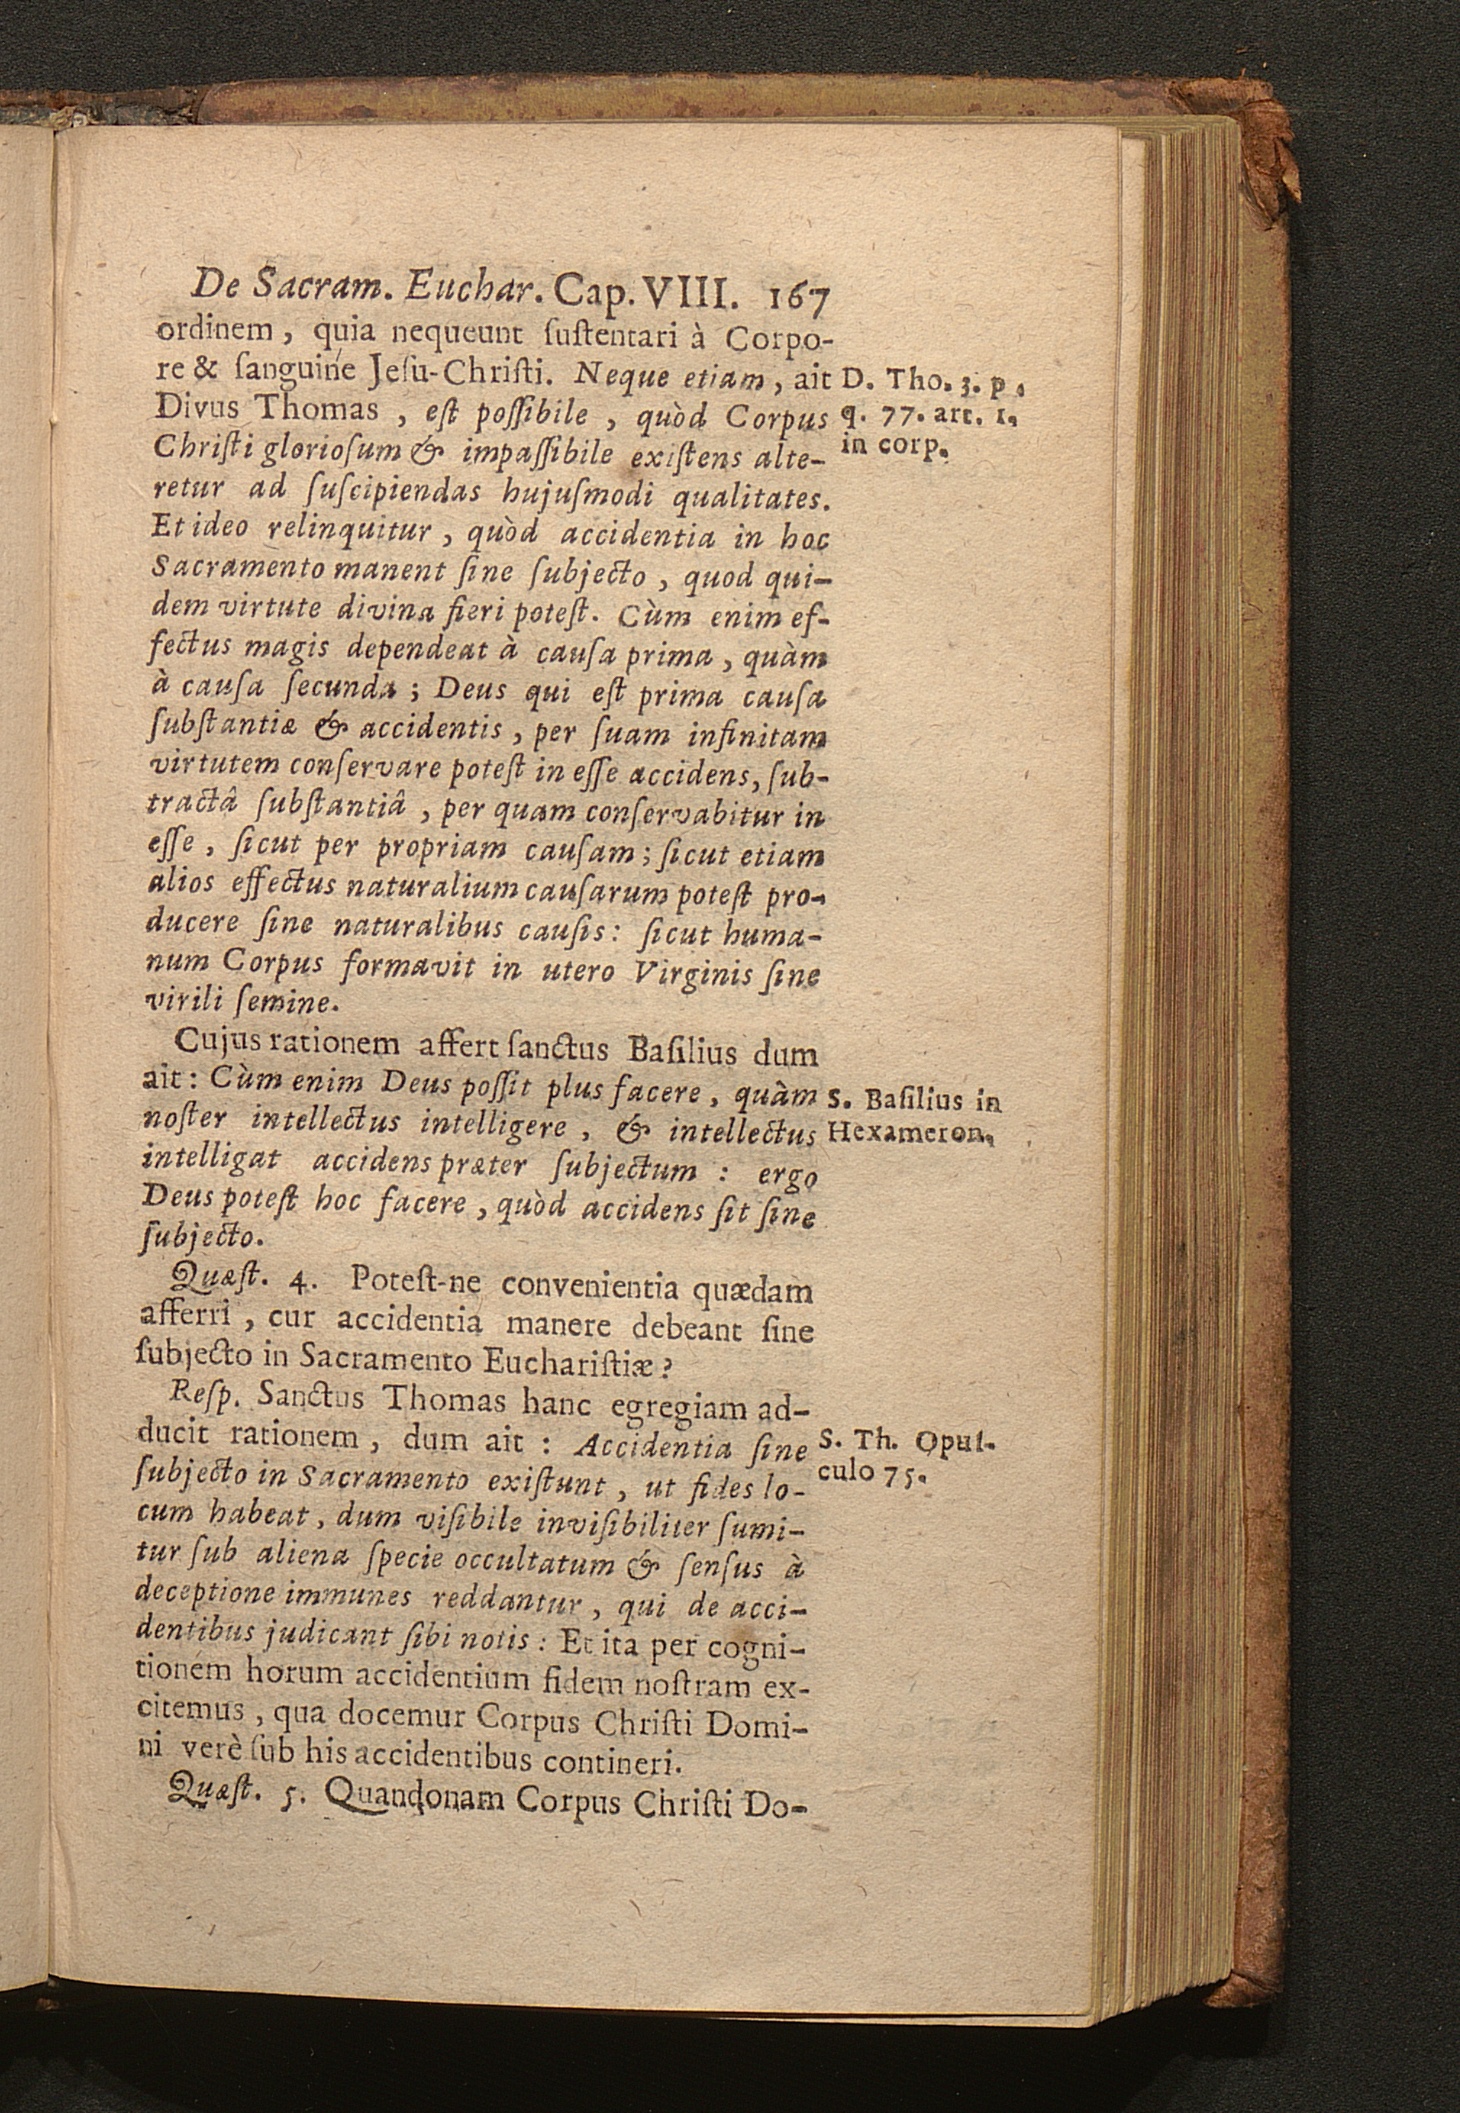 De Sacram. Euchar. Cap. VIII. 167
ordinem, quia nequeunt ſuſtentari à Corpo-
re & ſanguine Jeſu-Chriſti. Neque etiam, ait
D. Tho. 3. p.
Divus Thomas, eſt poſſibile, quòd Corpus
q. 77. art. 1.
Chriſti glorioſum & impaſſibile exiſtens alte-
in corp.
retur ad ſuſcipiendas hujuſmodi qualitates.
Et ideo relinquitur, quòd accidentia in hoc
Sacramento manent ſine ſubjecto, quod qui-
dem virtute divina fieri poteſt. Cùm enim ef-
fectus magis dependeat à cauſa prima, quàm
à cauſa ſecunda; Deus qui eſt prima cauſa
ſubſtantiæ & accidentis, per ſuam infinitam
virtutem conſervare poteſt in eſſe accidens, ſub-
tractâ ſubſtantiâ, per quam conſervabitur in
eſſe, ſicut per propriam cauſam; ſicut etiam
alios effectus naturalium cauſarum poteſt pro-
ducere ſine naturalibus cauſis: ſicut huma-
num Corpus formavit in utero Virginis ſine
virili ſemine.
Cujus rationem affert ſanctus Baſilius dum
ait: Cùm enim Deus poſſit plus facere, quàm
S. Baſilius in
noſter intellectus intelligere, & intellectus
Hexameron.
intelligat accidens præter ſubjectum: ergo
Deus poteſt hoc facere, quòd accidens ſit ſine
ſubjecto.
Quæſt. 4. Poteſt-ne convenientia quædam
afferri, cur accidentia manere debeant ſine
ſubjecto in Sacramento Euchariſtiæ?
Reſp. Sanctus Thomas hanc egregiam ad-
ducit rationem, dum ait: Accidentia ſine
S. Th. Opuſ-
ſubjecto in Sacramento exiſtunt, ut fides lo-
culo 75.
cum habeat, dum viſibile inviſibiliter ſumi-
tur ſub aliena ſpecie occultatum & ſenſus à
deceptione immunes reddantur, qui de acci-
dentibus judicant ſibi notis: Et ita per cogni-
tionem horum accidentium fidem noſtram ex-
citemus, qua docemur Corpus Chriſti Domi-
ni verè ſub his accidentibus contineri.
Quæſt. 5. Quandonam Corpus Chriſti Do-